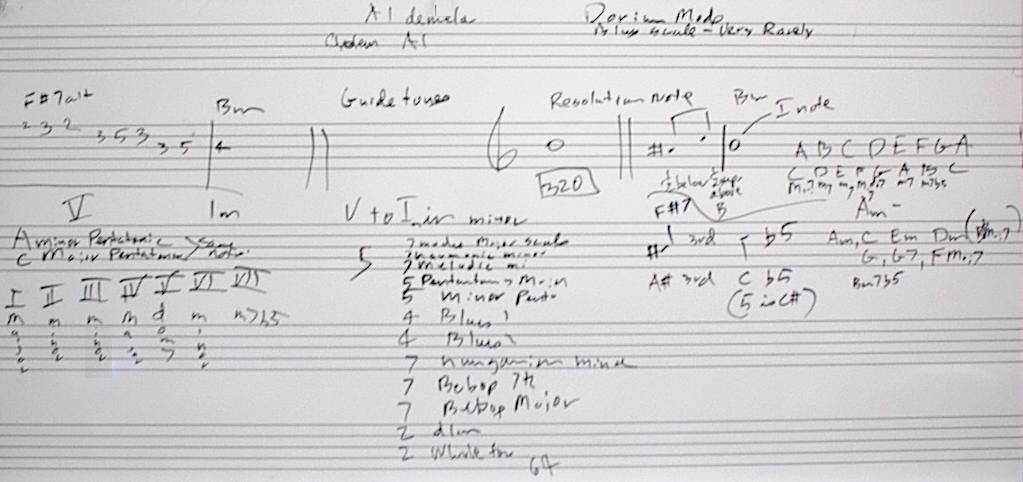 Al demela
Dorian Mode
Blues scale - Very Rarely
Al
F#7alt
Bm
Guide tones
Resolution note
Bm
I note
2 3 2 3 5 3 3 5
4
#
A B C D E F G A
C D E F G A B C
m7b5
320
1/2 below
above
V
Im
V to I in minor
F#7
B
Am-
A minor Pentatonic
C Major Pentatonic
same notes
5
7 modes Major scale
7 harmonic minor
7 Melodic mi
# 3rd
b5
Am, C Em Dm
G, G7, FMaj7
Bm7b5
I II III IV V VI VII
5 Pentatonic Major
5 Minor Penta
A# 3rd
C b5
(5 is C#)
m m m m d m m7b5
4 Blues
4 Blues
7 hungarian minor
7 Bebop 7th
7 Bebop Major
2 dim
2 Whole tone
64